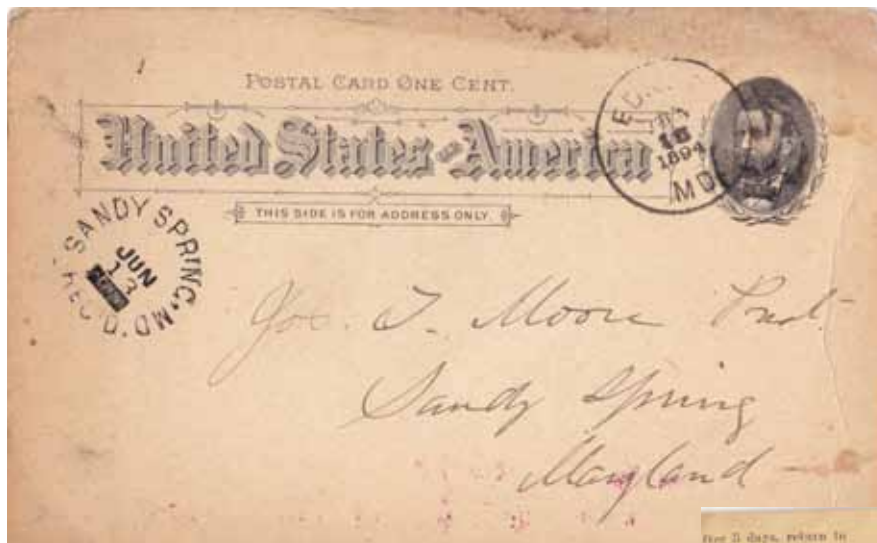 POSTAL CARD ONE CENT.
United States of America
THIS SIDE IS FOR ADDRESS ONLY.
1894
MD
SANDY SPRING, MD.
REC'D.
JUN
13
Jos. T. Moore Prest.
Sandy Spring
Maryland
5 days, return to